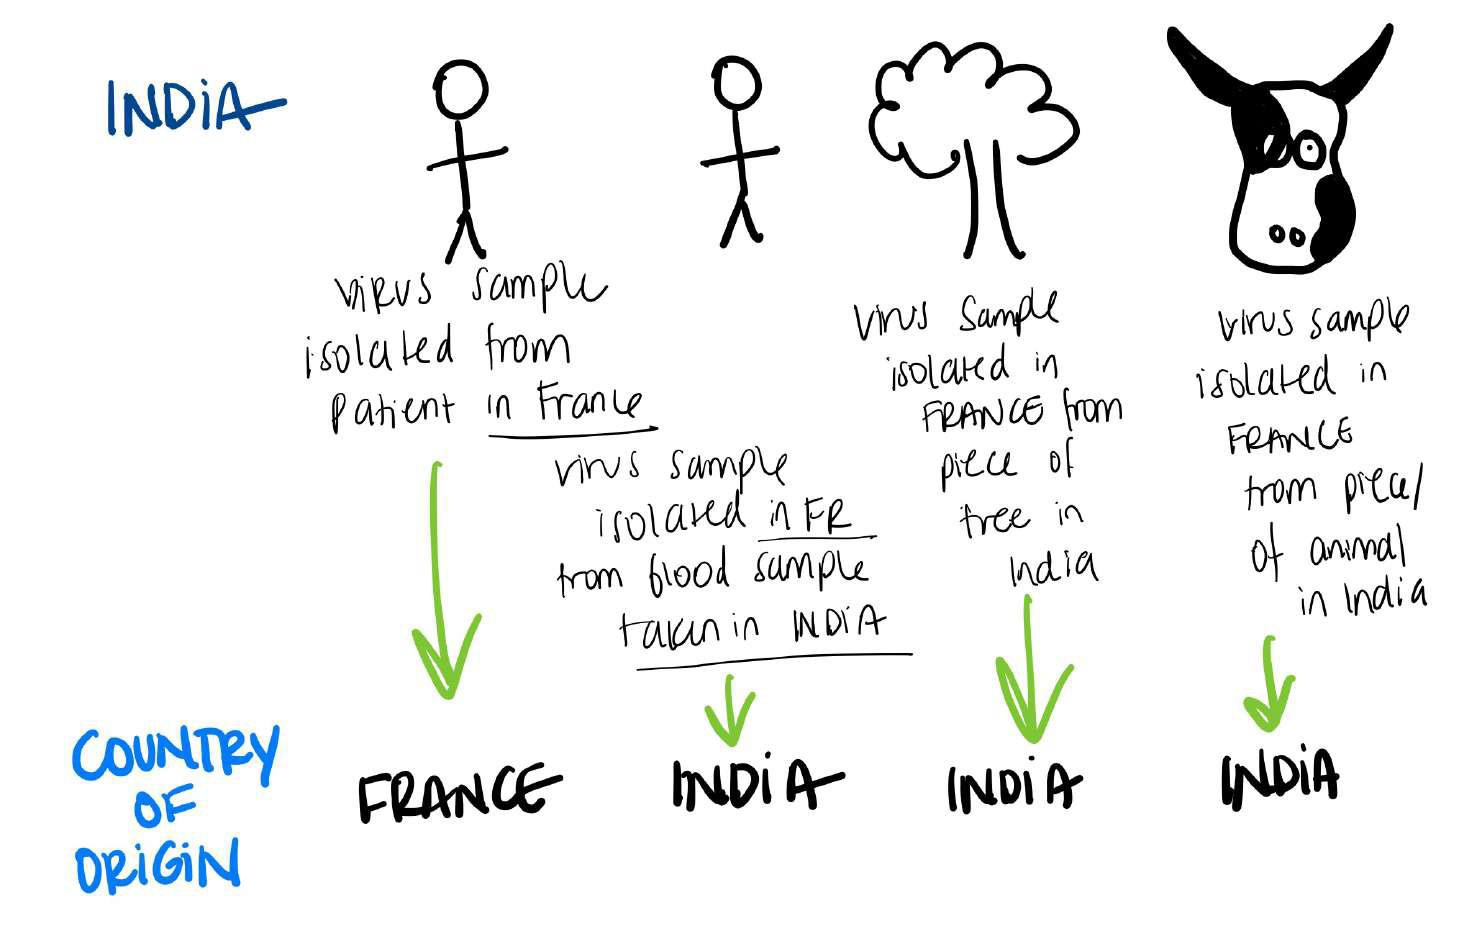 INDiA
VIRUS sample
isolated from
Patient in France
virus sample
isolated in FR
from blood sample
taken in INDIA
Virus Sample
isolated in
FRANCE from
piece of
tree in
India
virus sample
isolated in
FRANCE
from piece/
of animal
in India
COUNTRY
OF
ORiGiN
FRANCE
INDiA
INDiA
INDiA